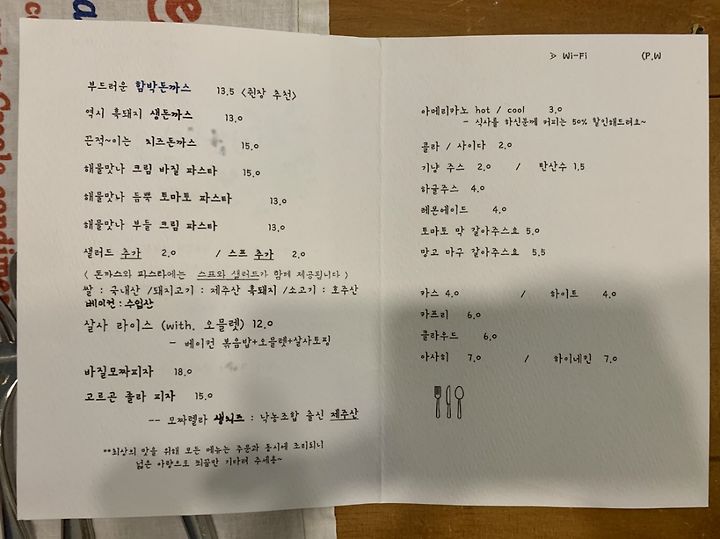 부드러운 함박돈까스 13.5 <쥔장 추천>
역시 흑돼지 생돈까스 13.0
끈적~이는 치즈돈까스 15.0
해물맛나 크림 바질 파스타 15.0
해물맛나 듬뿍 토마토 파스타 13.0
해물맛나 부들 크림 파스타 13.0
샐러드 추가 2.0 / 스프 추가 2.0
< 돈까스와 파스타에는 스프와 샐러드가 함께 제공됩니다 >
쌀 : 국내산 /돼지고기 : 제주산 흑돼지 /소고기 : 호주산
베이컨 : 수입산
살사 라이스 (with. 오믈렛) 12.0
- 베이컨 볶음밥+오믈렛+살사토핑
바질모짜피자 18.0
고르곤 졸라 피자 15.0
-- 모짜렐라 생치즈 : 낙농조합 출신 제주산
**최상의 맛을 위해 모든 메뉴는 주문과 동시에 조리되니
넓은 아량으로 쬐끔만 기다려 주세용~
> Wi-Fi (P.W
아메리카노 hot / cool 3.0
- 식사를 하신분께 커피는 50% 할인해드려요~
콜라 / 사이다 2.0
기냥 주스 2.0 / 탄산수 1.5
하귤주스 4.0
레몬에이드 4.0
토마토 막 갈아주스요 5.0
망고 마구 갈아주스요 5.5
카스 4.0 / 하이트 4.0
카프리 6.0
클라우드 6.0
아사히 7.0 / 하이네킨 7.0